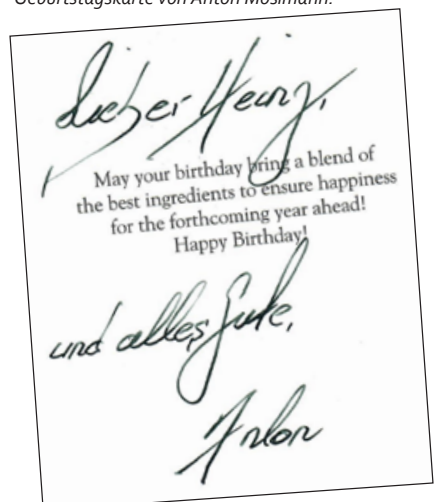 Geburtstagskarte von Anton Mosimann.
Lieber Heinz,
May your birthday bring a blend of
the best ingredients to ensure happiness
for the forthcoming year ahead!
Happy Birthday!
und alles Gute,
Anton